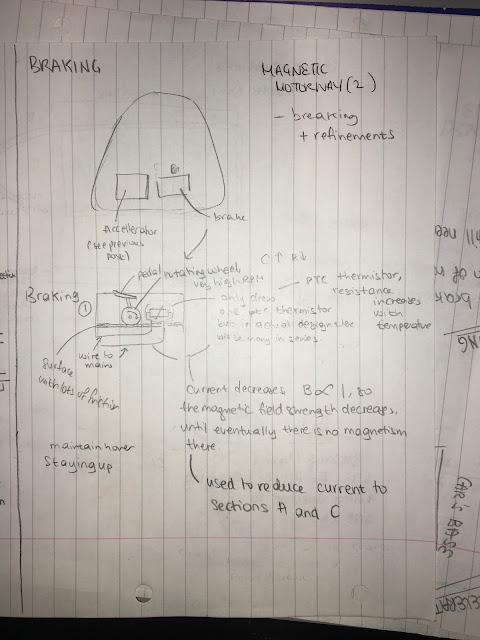 BRAKING
MAGNETIC
MOTORWAY (2)
- breaking
+ refinements
Accellerator
(see previous
page)
brake
C↑ R↓
pedal
rotating wheel,
very high RPM
Braking
①
only drew
one ptc thermistor
but in actual design
many in series
PTC thermistor,
resistance
increases
with
temperature
Surface
with lots of friction
wire to
mains
Current decreases B ∝ I, so
the magnetic field strength decreases,
until eventually there is no magnetism
there
maintain hover
staying up
used to reduce current to
sections A and C
CAR'S BASE